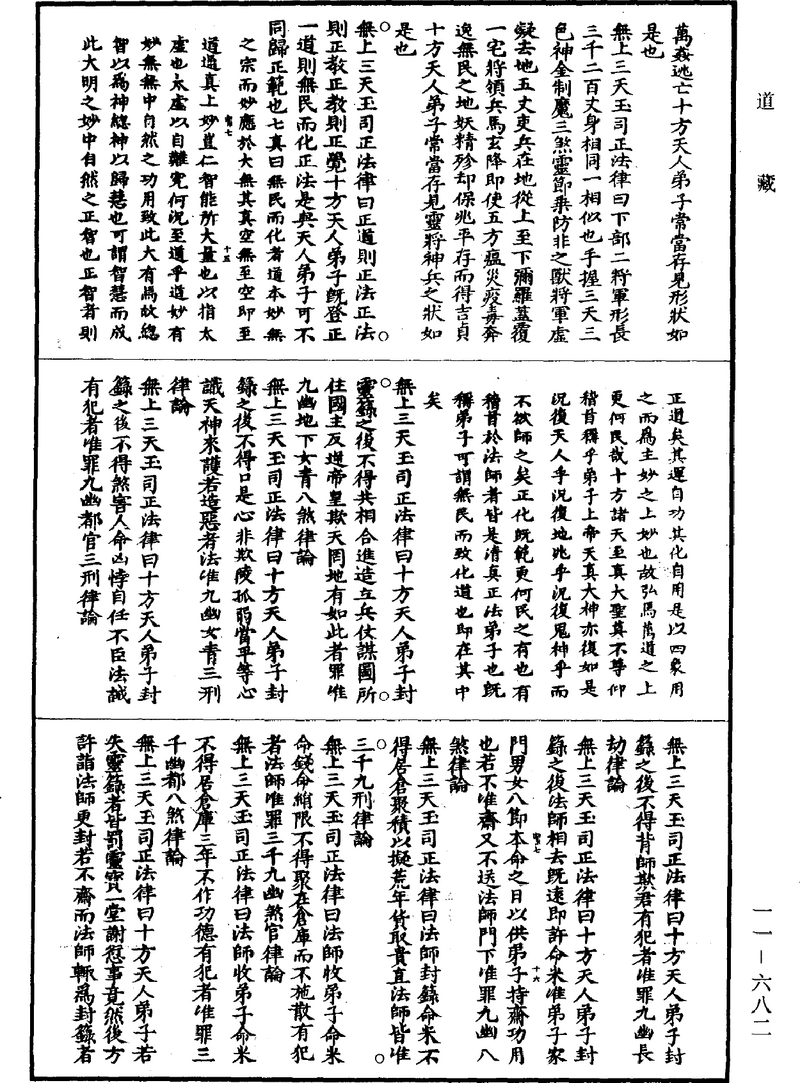 道藏
萬姦逃亡十方天人弟子常當存見形狀如
是也
無上三天玉司正法律曰下部二將軍形長
三千二百丈身相同一相似也手握三天三
色神金制魔三煞靈節乘防非之獸將軍虛
凝去地五丈吏兵在地從上至下彌羅蓋覆
一宅將領兵馬玄降即使五方瘟災疫毒奔
逸無民之地妖精殄却保兆平存而得吉貞
十方天人弟子常當存見靈將神兵之狀如
是也
無上三天玉司正法律曰正道則正法正法
則正教正教則正覺十方天人弟子旣登正
一道則無民而化正法是與天人弟子可不
同歸正範也七真曰無民而化者道本妙無
之宗而妙應於大無其真空無至空即至
道道真上妙豈仁智能所大量也以指太
虛也太虛以自難究何況至道乎道妙有
妙無無中自然之功用致此大有爲故總
智以爲神總神以歸慧也可謂智慧而成
此大明之妙中自然之正智也正智者則
正道矣其運自功其化自用是以四象用
之而爲主妙之上妙也故弘爲萬道之上
更何民哉十方諸天至真大聖莫不等仰
稽首稱乎弟子上帝天真大神亦復如是
況復天人乎況復地兆乎況復鬼神乎而
不欲師之矣正化旣範更何民之有也有
稽首於法師者皆是清真正法弟子也旣
稱弟子可謂無民而致化道也即在其中
矣
無上三天玉司正法律曰十方天人弟子封
靈籙之後不得共相合進造立兵仗謀圖所
住國主反逆帝皇欺天罔地有如此者罪惟
九幽地下女青八煞律論
無上三天玉司正法律曰十方天人弟子封
籙之後不得口是心非欺陵孤弱當平等心
識天神來護若造惡者法准九幽女青三刑
律論
無上三天玉司正法律曰十方天人弟子封
籙之後不得煞害人命凶悖自任不臣法誡
有犯者唯罪九幽都官三刑律論
無上三天玉司正法律曰十方天人弟子封
籙之後不得背師欺君有犯者唯罪九幽長
劫律論
無上三天玉司正法律曰十方天人弟子封
籙之後法師相去旣遠即許命米准弟子家
門男女八節本命之日以供弟子持齋功用
也若不准齋又不送法師門下唯罪九幽八
煞律論
無上三天玉司正法律曰法師封籙命米不
得居倉聚積以擬荒年貨取貴直法師皆准
三千九刑律論
無上三天玉司正法律曰法師收弟子命米
命錢命綃限不得聚在倉庫而不施散有犯
者法師唯罪三千九幽煞官律論
無上三天玉司正法律曰法師收弟子命米
不得居倉庫三年不作功德有犯者唯罪三
千幽都八煞律論
無上三天玉司正法律曰十方天人弟子若
失靈籙者皆罰靈寶一堂謝愆事竟然後方
許詣法師更封若不齋而法師輒爲封籙者
一一－六八二